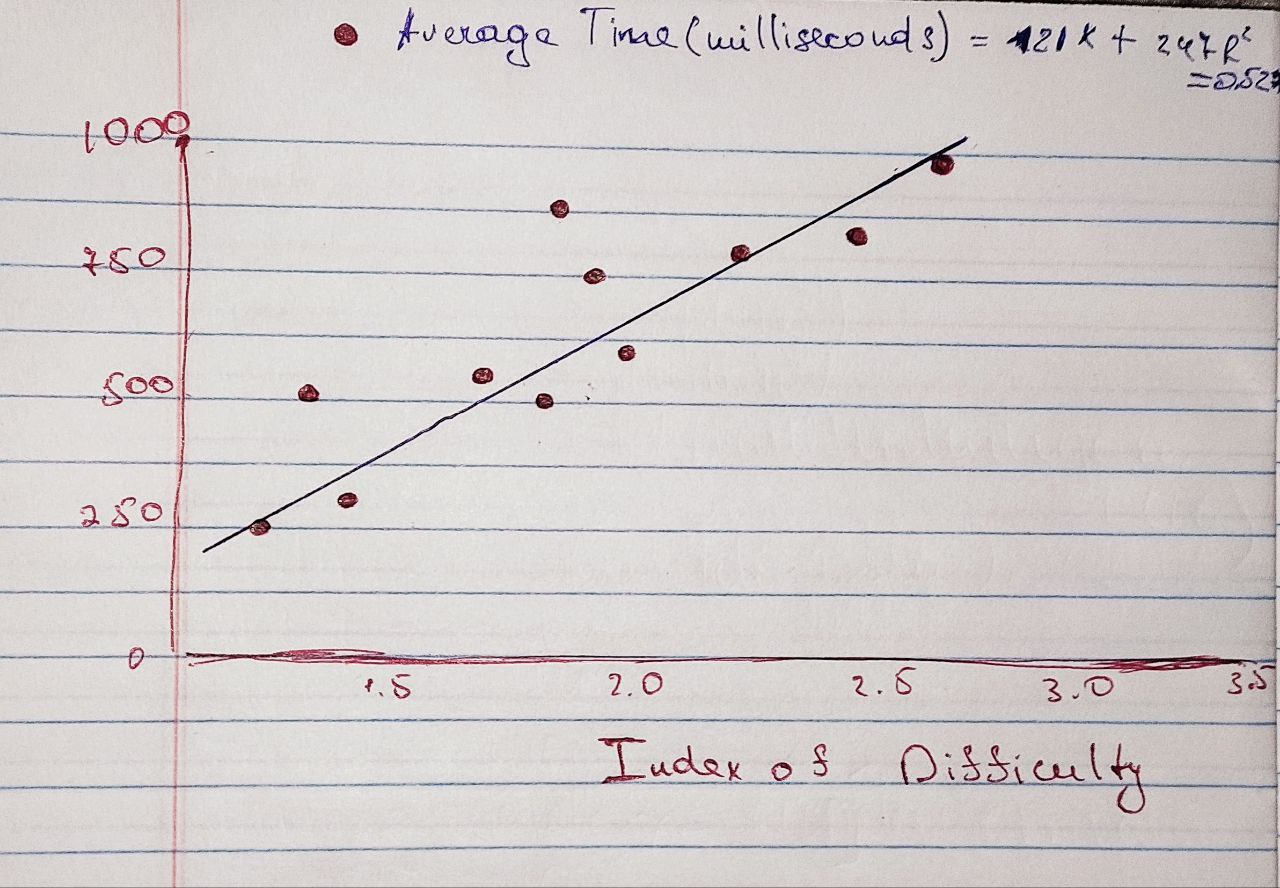 Average Time (milliseconds) = 121x + 247R²
=0.527
1000
750
500
250
0
1.5 2.0 2.5 3.0 3.5
Index of Difficulty